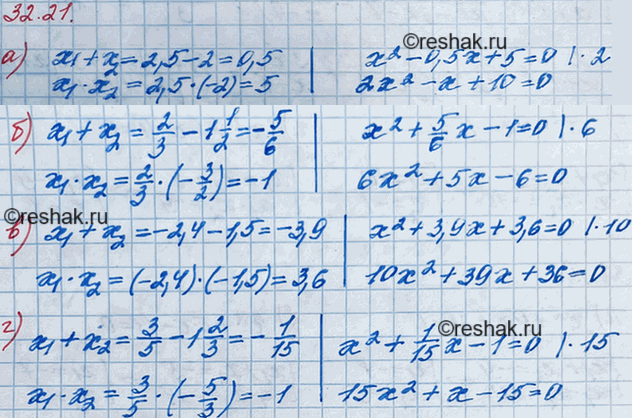 32.21.
©reshak.ru
а) x₁ + x₂ = 2,5 − 2 = 0,5 | x² − 0,5x + 5 = 0 | · 2
x₁ · x₂ = 2,5 · (−2) = 5 | 2x² − x + 10 = 0
б) x₁ + x₂ = 2/3 − 1 1/2 = −5/6 | x² + 5/6 x − 1 = 0 | · 6
x₁ · x₂ = 2/3 · (−3/2) = −1 | 6x² + 5x − 6 = 0
©reshak.ru
в) x₁ + x₂ = −2,4 − 1,5 = −3,9 | x² + 3,9x + 3,6 = 0 | · 10
x₁ · x₂ = (−2,4) · (−1,5) = 3,6 | 10x² + 39x + 36 = 0
©reshak.ru
г) x₁ + x₂ = 3/5 − 1 2/3 = −1/15 | x² + 1/15 x − 1 = 0 | · 15
x₁ · x₂ = 3/5 · (−5/3) = −1 | 15x² + x − 15 = 0